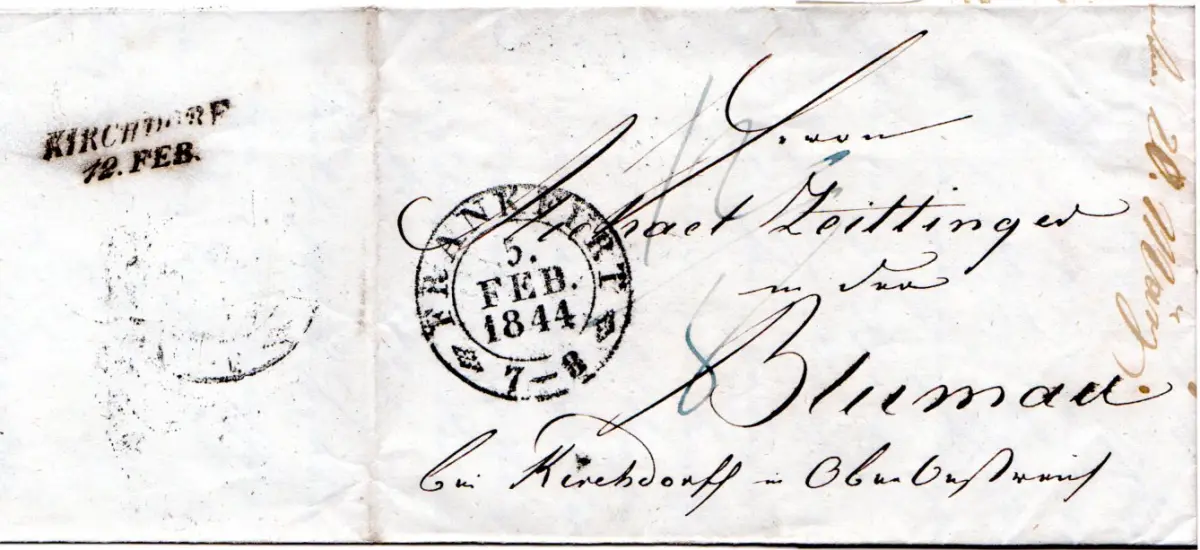 KIRCHDORF
12. FEB.
FRANKFURT
5.
FEB.
1844
7-8
Herrn
Michael Zeittinger
in der
Blumau
bei Kirchdorff in OberOestreich
20. März